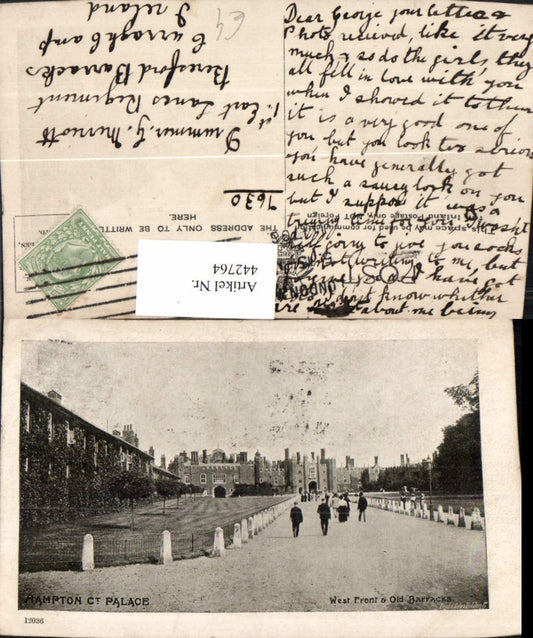 Dear George your letter &
Photo received, like it very
much & so do the girls, they
all fell in love with you
when I showed it to them
it is a very good one of
you but you look too serious
you have generally got
such a saucy look on you
but I suppose it was a
trying time for you
going to give you socks
for not writing to me, but
I have got
know whether
about me being
Drummer, G. Merriott
1st East Lancs Regiment
Beresford Barracks
Curragh Camp
Ireland
7630
64
THE ADDRESS ONLY TO BE WRITTEN
HERE.
This space may be used for communication
Inland Postage only, NOT Foreign
POST
LONDON
Artikel Nr.
442764
HAMPTON CT PALACE
West Front & Old Barracks
12036